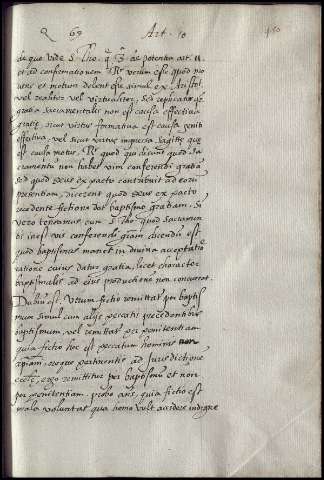 Q 69 Art. 10 450
de quo vide S. Tho. q. 3. de potentia art. 11
et ad confirmationem Rr verum esse quod mo
uens et motum debent esse simul ex Aristot.
vel realiter vel virtualiter, sed replicatur
gratia sacramentalis non est causa effectiua
gratiæ, sicut virtus formatiua est causa genito
effectiua, vel sicut virtus impressa sagittę quę
est causa motus. Rr quod qui dicunt quod sa
cramentum non habet vim conferendi gratiā
sed quod deus ex pacto contribuit ad eorū
presentiam, dicerent quod deus ex pacto
recedente fictione dat baptismo gratiam. si
vero teneamus cum S. Tho. quod sacramen
ti inest vis conferendi gratiam dicendū est
quod baptismus manet in diuina acceptatio
ratione cuius datur gratia, licet character
baptismalis ad eius productionem non concurrat.
Dubiū est, Vtrum fictio remittatur per baptis
mum simul cum alijs peccatis precedentibus
baptismum, vel remittatur per penitentiam
quia fictio hoc est peccatum hominis non
pertinentis ad Jurisdictionē
eccłę, ergo remittitur per baptismū et non
per penitentiam. probo ans, quia fictio est
mala voluntas qua homo vult accedere indigne